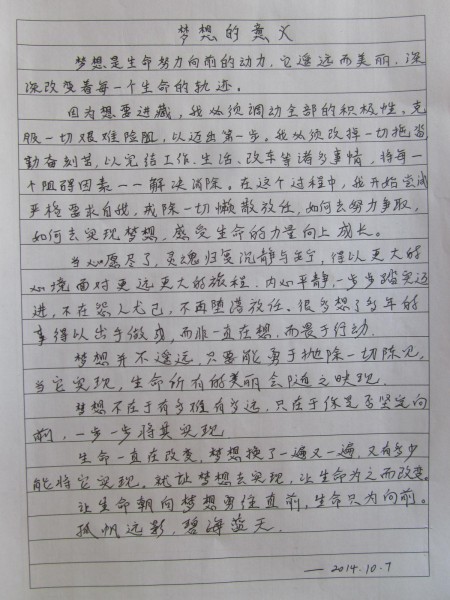 梦想的意义
梦想是生命努力向前的动力,它遥远而美丽,深
深改变着每一个生命的轨迹。
因为想要进藏,我必须调动全部的积极性,克
服一切艰难险阻,以迈出第一步。我必须改掉一切拖沓
勤奋刻苦,以完结工作、生活、改车等诸多事情,将每一
个阻碍因素一一解决消除。在这个过程中,我开始尝试
严格要求自我,戒除一切懒散放任,如何去努力争取,
如何去实现梦想,感受生命的力量向上成长。
当心愿尽了,灵魂归复沉静与安宁,得以更大的
心境面对更远更大的旅程,内心平静,一步步踏实迈
进,不在怨人尤己,不再堕落放任。很多想了多年的
事得以出手做成,而非一直在想,而畏于行动.
梦想并不遥远,只要能勇于抛除一切陈见,
当它实现,生命所有的美丽会随之映现.
梦想不在于有多难有多远,只在于你是否坚定向
前,一步一步将其实现.
生命一直在改变,梦想换了一遍又一遍,又有多少
能将它实现。就让梦想去实现,让生命为之而改变。
让生命朝向梦想勇往直前,生命只为向前。
孤帆远影,碧海蓝天.
——2014.10.7